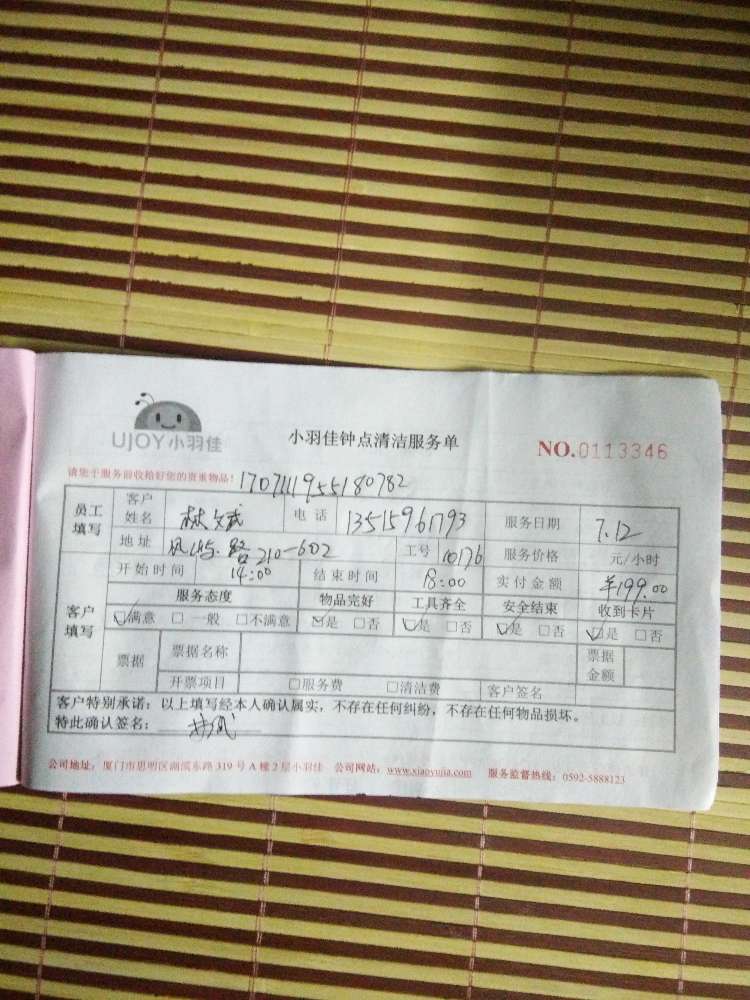 UJOY小羽佳
小羽佳钟点清洁服务单
NO.0113346
请您于服务前收拾好您的贵重物品！ 1707111955180782
员工填写 客户姓名 林文武 电话 13515961793 服务日期 7.12
地址 210-602 工号 10176 服务价格 元/小时
开始时间 14:00 结束时间 18:00 实付金额 ¥199.00
客户填写 服务态度 物品完好 工具齐全 安全结束 收到卡片
☑满意 □一般 □不满意 ☑是 □否 ☑是 □否 ☑是 □否 ☑是 □否
票据 票据名称 票据金额
开票项目 □服务费 □清洁费 客户签名
客户特别承诺：以上填写经本人确认属实，不存在任何纠纷，不存在任何物品损坏。
特此确认签名：
公司地址：厦门市思明区湖滨东路319号A幢2层小羽佳 公司网站：www.xiaoyujia.com 服务监督热线：0592-5888123